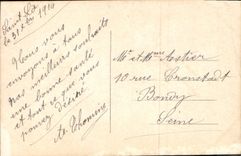 Saint-Lô
le 31 Xbre 1910
Nous vous
envoyons à tous
nos meilleurs souhaits
une bonne santé
et tout ce que vous
pouvez désirer
Mr et Mme Astier
10 rue Cronstadt
Bondy
Seine